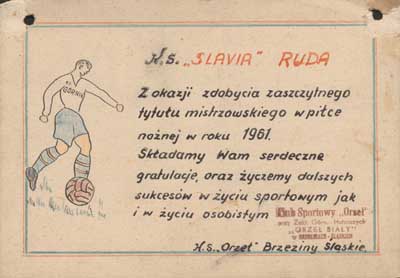 K.S. „SLAVIA" RUDA
Z okazji zdobycia zaszczytnego
tytułu mistrzowskiego w piłce
nożnej w roku 1961.
Składamy Wam serdeczne
gratulacje, oraz życzemy dalszych
sukcesów w życiu sportowym jak
i w życiu osobistym
GÓRNIK
Klub Sportowy „Orzeł"
przy Zakł. Górn.-Hutniczych
„ORZEŁ BIAŁY"
K.S. „Orzeł" Brzeziny Śląskie